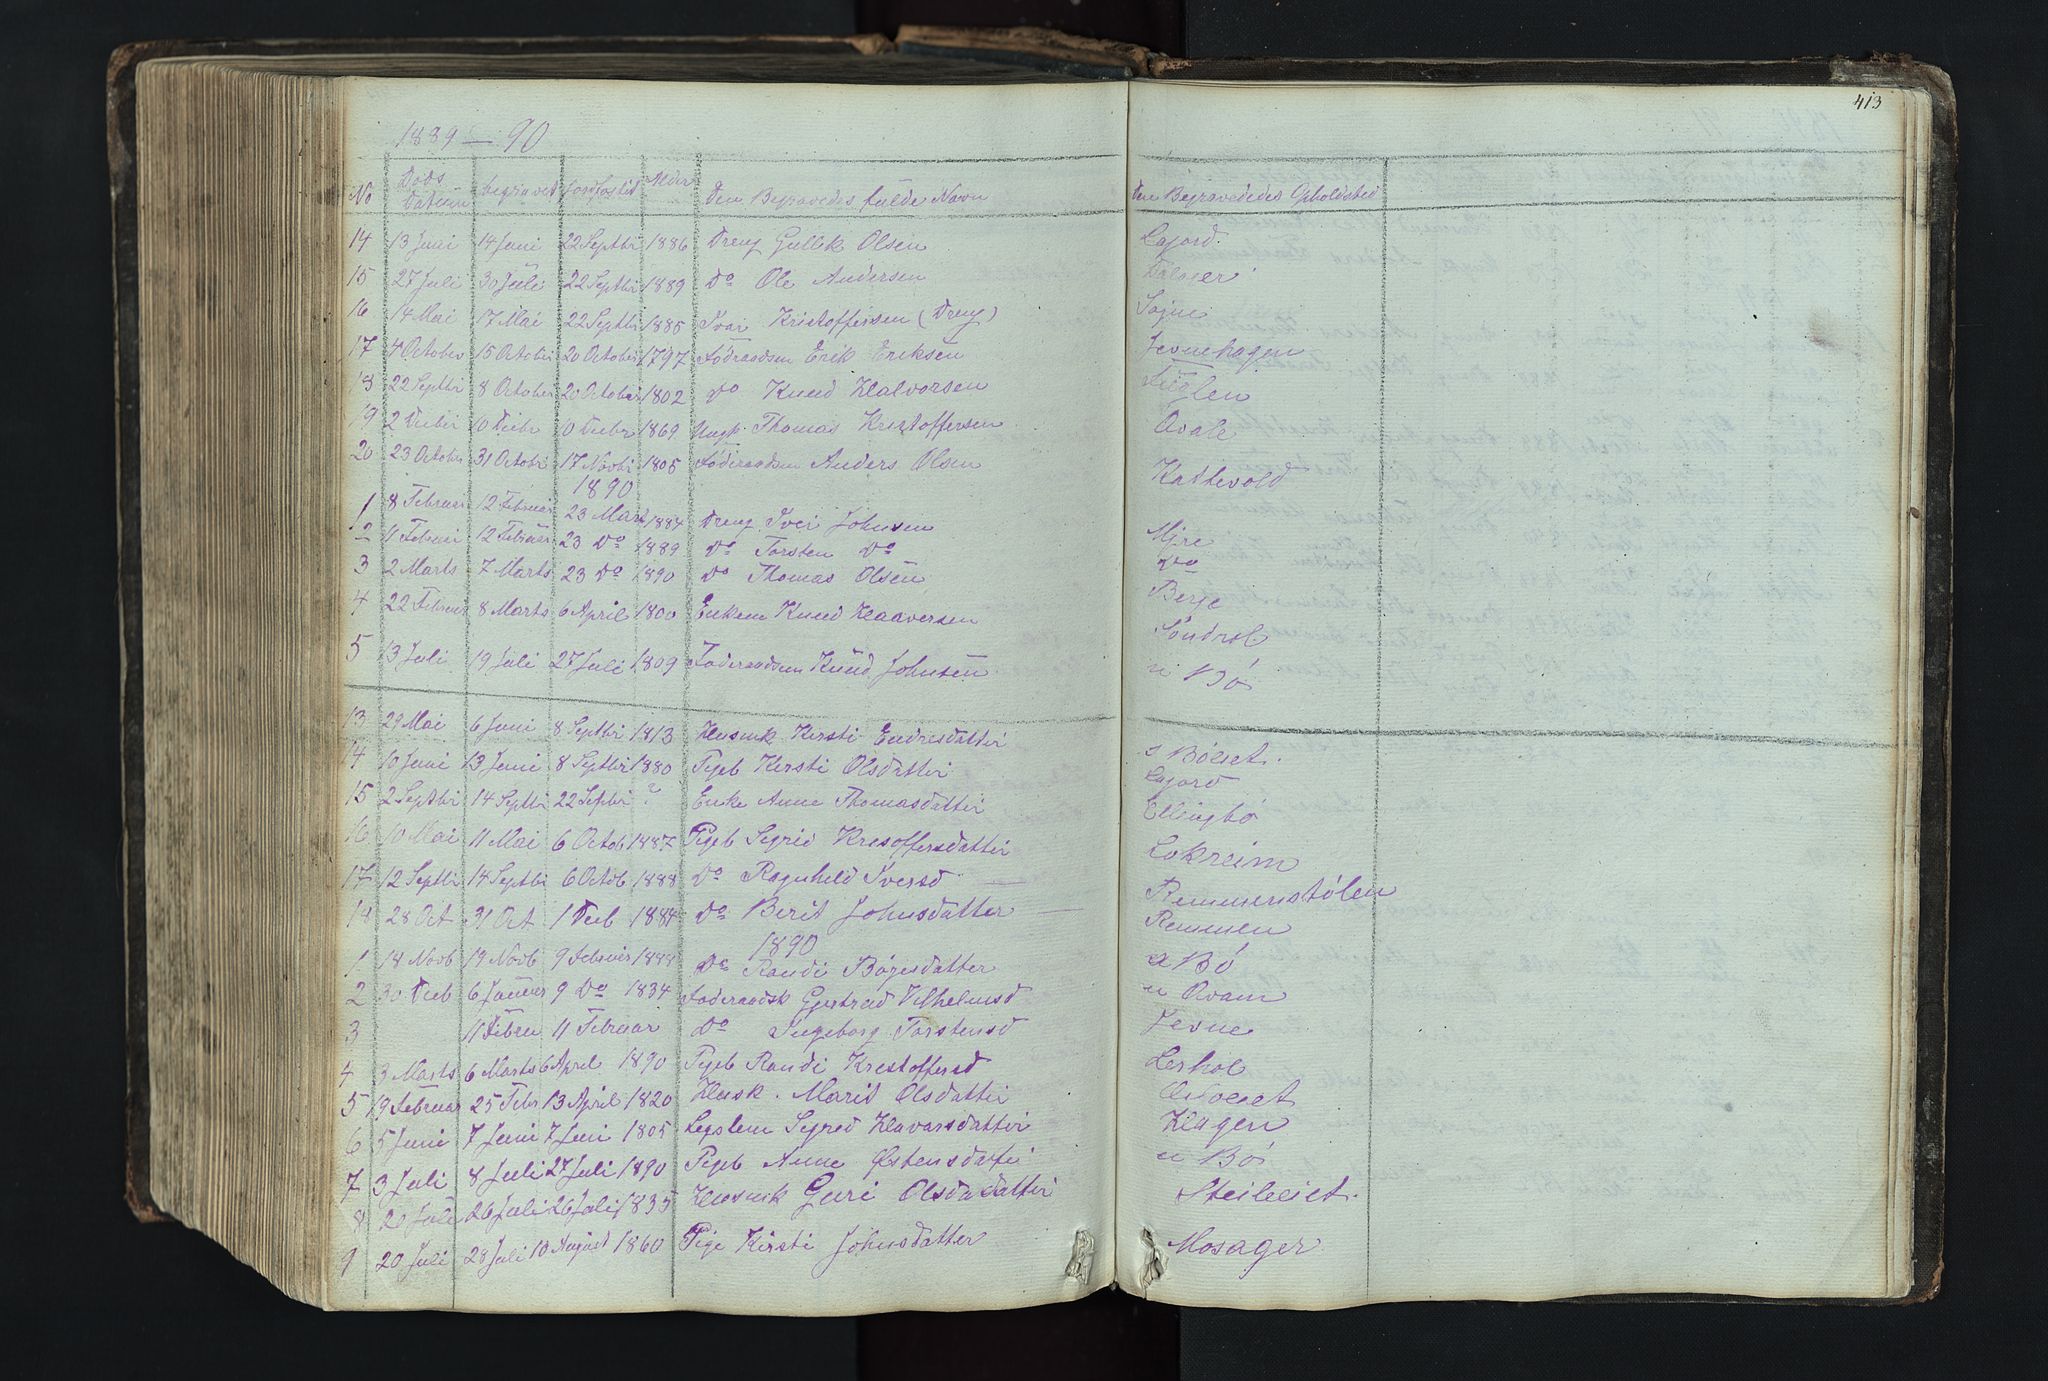 413
1889 — 90
No Døds Datum begravet Jordfæstet Alder Den Begravedes fulde Navn Den Begravededes Opholdsted
14 13 Juni 14 Juni 22 Septbr 1886 Dreng Gullik Olsen
15 27 Juli 30 Juli 22 Septbr 1889 Do Ole Andersen
16 14 Mai 17 Mai 22 Septbr 1885 Ivar Kristoffersen (Dreng)
17 4 October 15 October 20 October 1797 Föderaadsm Erik Eriksen Jevnehagen
18 22 Septbr 8 October 20 October 1802 Do Knud Halvorsen
19 2 Decbr 10 Decbr 10 Decbr 1869 Ungk. Thomas Kristoffersen Qvale
20 23 October 31 Octobr 17 Novbr 1805 Föderaadsm Anders Olsen Kattevold
1890
1 8 Februar 12 Februar 23 Marts 1884 Dreng Iver Johnsen Mjre
2 11 Februar 12 Februar 23 Do 1889 Do Torsten Do Do
3 2 Marts 7 Marts 23 Do 1890 Do Thomas Olsen Berge
4 22 Februar 8 Marts 6 April 1800 Enkem Knud Haaversen Söndrol
5 13 Juli 19 Juli 27 Juli 1809 Föderaadsm Knud Johnsen n Bö
13 29 Mai 6 Juni 8 Septbr 1813 Kirsti Endresdatter
14 10 Juni 13 Juni 8 Septbr 1880 Pigeb Kirsti Olsdatter
15 2 Septbr 14 Septbr 22 Septbr ? Enke Anne Thomasdatter Ellingbö
16 10 Mai 11 Mai 6 Octob 1887 Pigeb Sigrid Kresoffersdatter Lokreim
17 12 Septbr 14 Septbr 6 Octob 1888 Do Ragnheld Iversd — Remmenstölen
18 28 Oct 31 Oct 1 Decb 1884 Do Berit Johnsdatter — Remmen
1890
1 18 Novb 19 Novb 9 Februar 1888 Do Randi Börjesdatter Bö
2 30 Decb 6 Januar 9 Do 1834 Föderaadsk Gjertrud Vilhelmsd Qvam
3 11 Febru 11 Februar Do Ingeborg Torstensd Jevne
4 3 Marts 6 Marts 6 April 1890 Pigeb Randi Krestoffersd Lerhol
5 19 Februar 25 Febr 13 April 1820 Husk. Marit Olsdatter
6 5 Juni 7 Juni 7 Juni 1805 Leglem Sigred Havarsdatter Hagen
7 3 Juli 8 Juli 27 Juli 1890 Pigeb Anne Østensdatter n Bö
8 20 Juli 26 Juli 26 Juli 1835 Guri Olsdadatter
9 20 Juli 28 Juli 10 August 1860 Pige Kirsti Johnsdatter Mosager